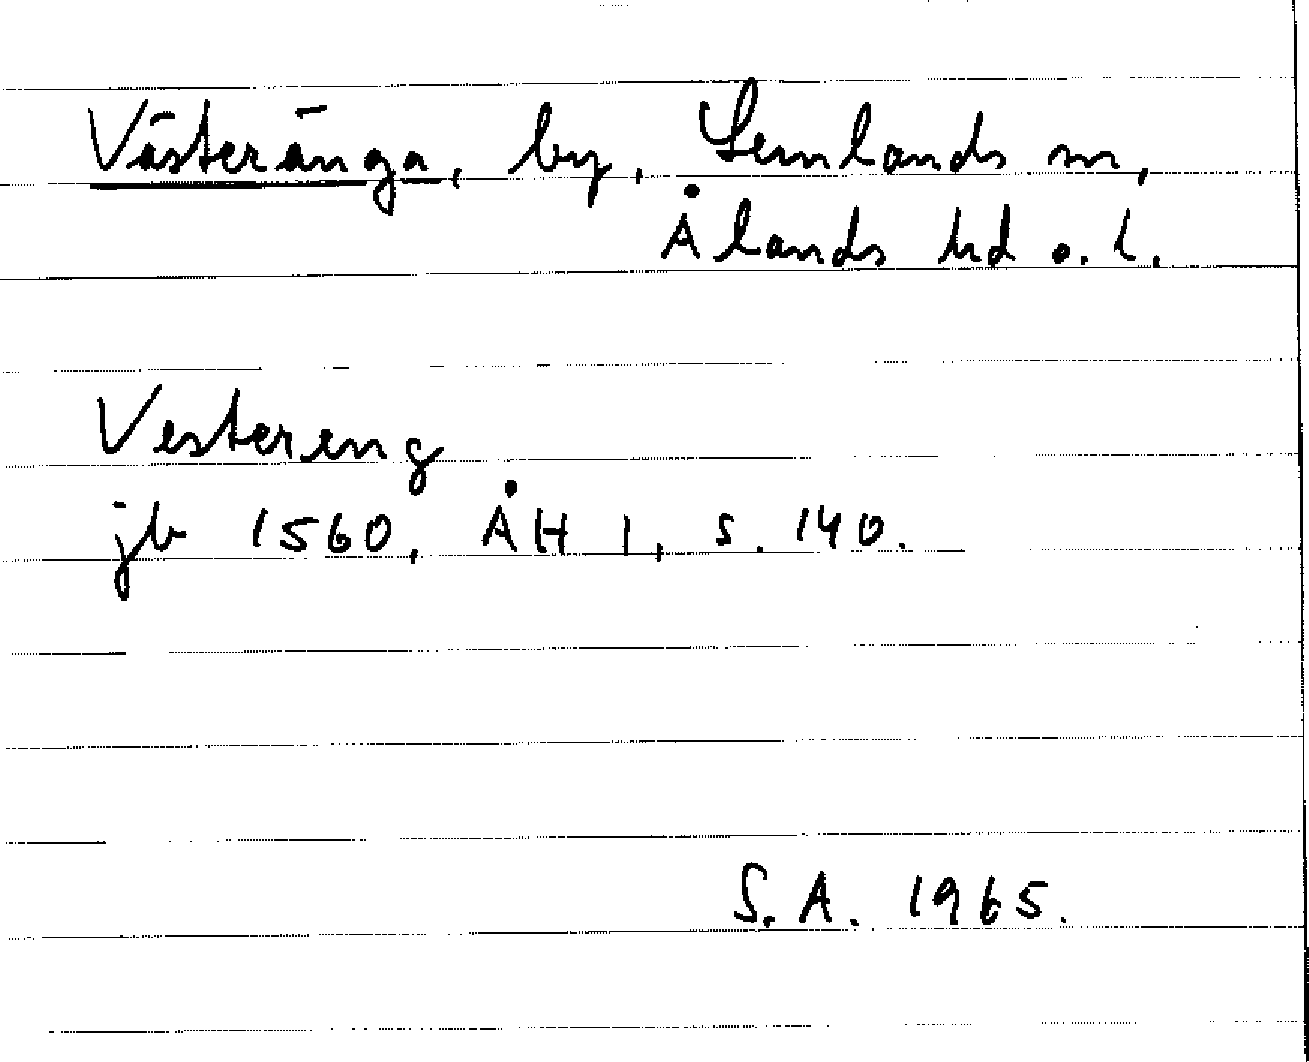 Västerånga, by, Lemlands sn,
Ålands hd o. l.
Vestereng
jb 1560, ÅH 1, s. 140.
S.A. 1965.